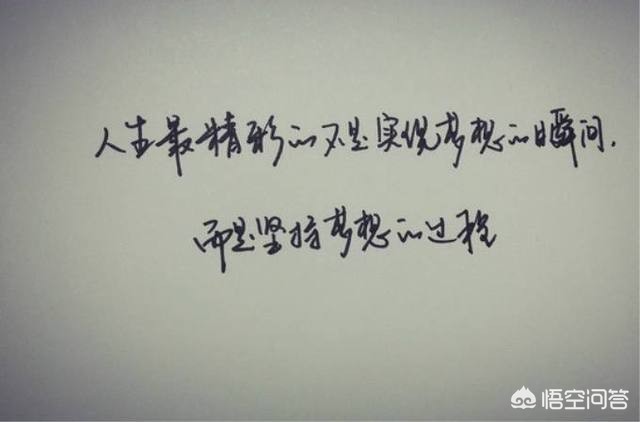 人生最精彩的不是实现梦想的瞬间,
而是坚持梦想的过程
悟空问答